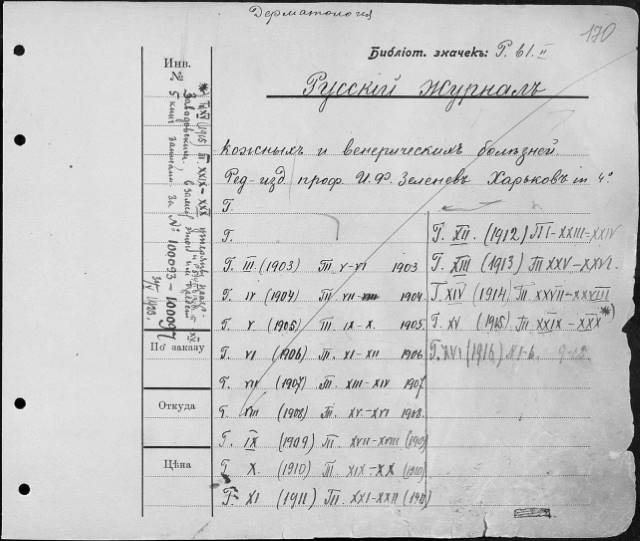 Дерматологія
170
Библіот. значекъ: Р. 61. II
Русскій журналъ
кожныхъ и венерическихъ болѣзней.
Ред-изд. проф. И.Ф. Зеленевъ Харьковъ in 4°
Г.
Г.
Г. III. (1903) Т. V-VI 1903
Г. IV (1904) Т. VII-VIII 1904.
Г. V. (1905) Т. IX-X. 1905.
Г. VI (1906) Т. XI-XII 1906
Г. VII (1907) Т. XIII-XIV 1907.
Г. VIII (1908) Т. XV-XVI 1908.
Г. IX (1909) Т. XVII-XVIII (1909)
Г. X. (1910) Т. XIX-XX (1910)
Г. XI (1911) Т. XXI-XXII (1911)
Г. XII. (1912) Т. XXIII-XXIV
Г. XIII (1913) Т. XXV-XXVI.
Г. XIV (1914) Т. XXVII-XXVIII
Г. XV (1915) Т. XXIX-XXX*)
Г. XVI (1916) №1-6. 9-12.
Инв.
№
*) Г. XV (1915) Т. XXIX-XXX утеряны
Заводовскимъ, взамен
5 книг записаны за №: 100093-100097
1923.
По заказу
Откуда
Цѣна